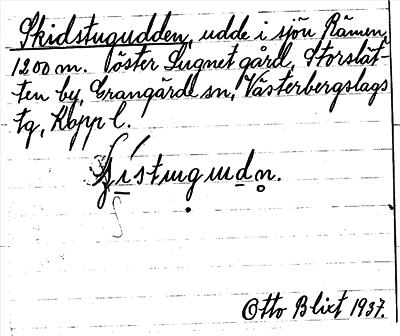 Skidstugudden, udde i sjön Rämen,
1200 m. öster Lugnet gård, Storslät-
ten by, Grangärde sn, Västerbergslags
tg, Kbppl.
ístuguḍn̥.
Otto Blixt 1937.